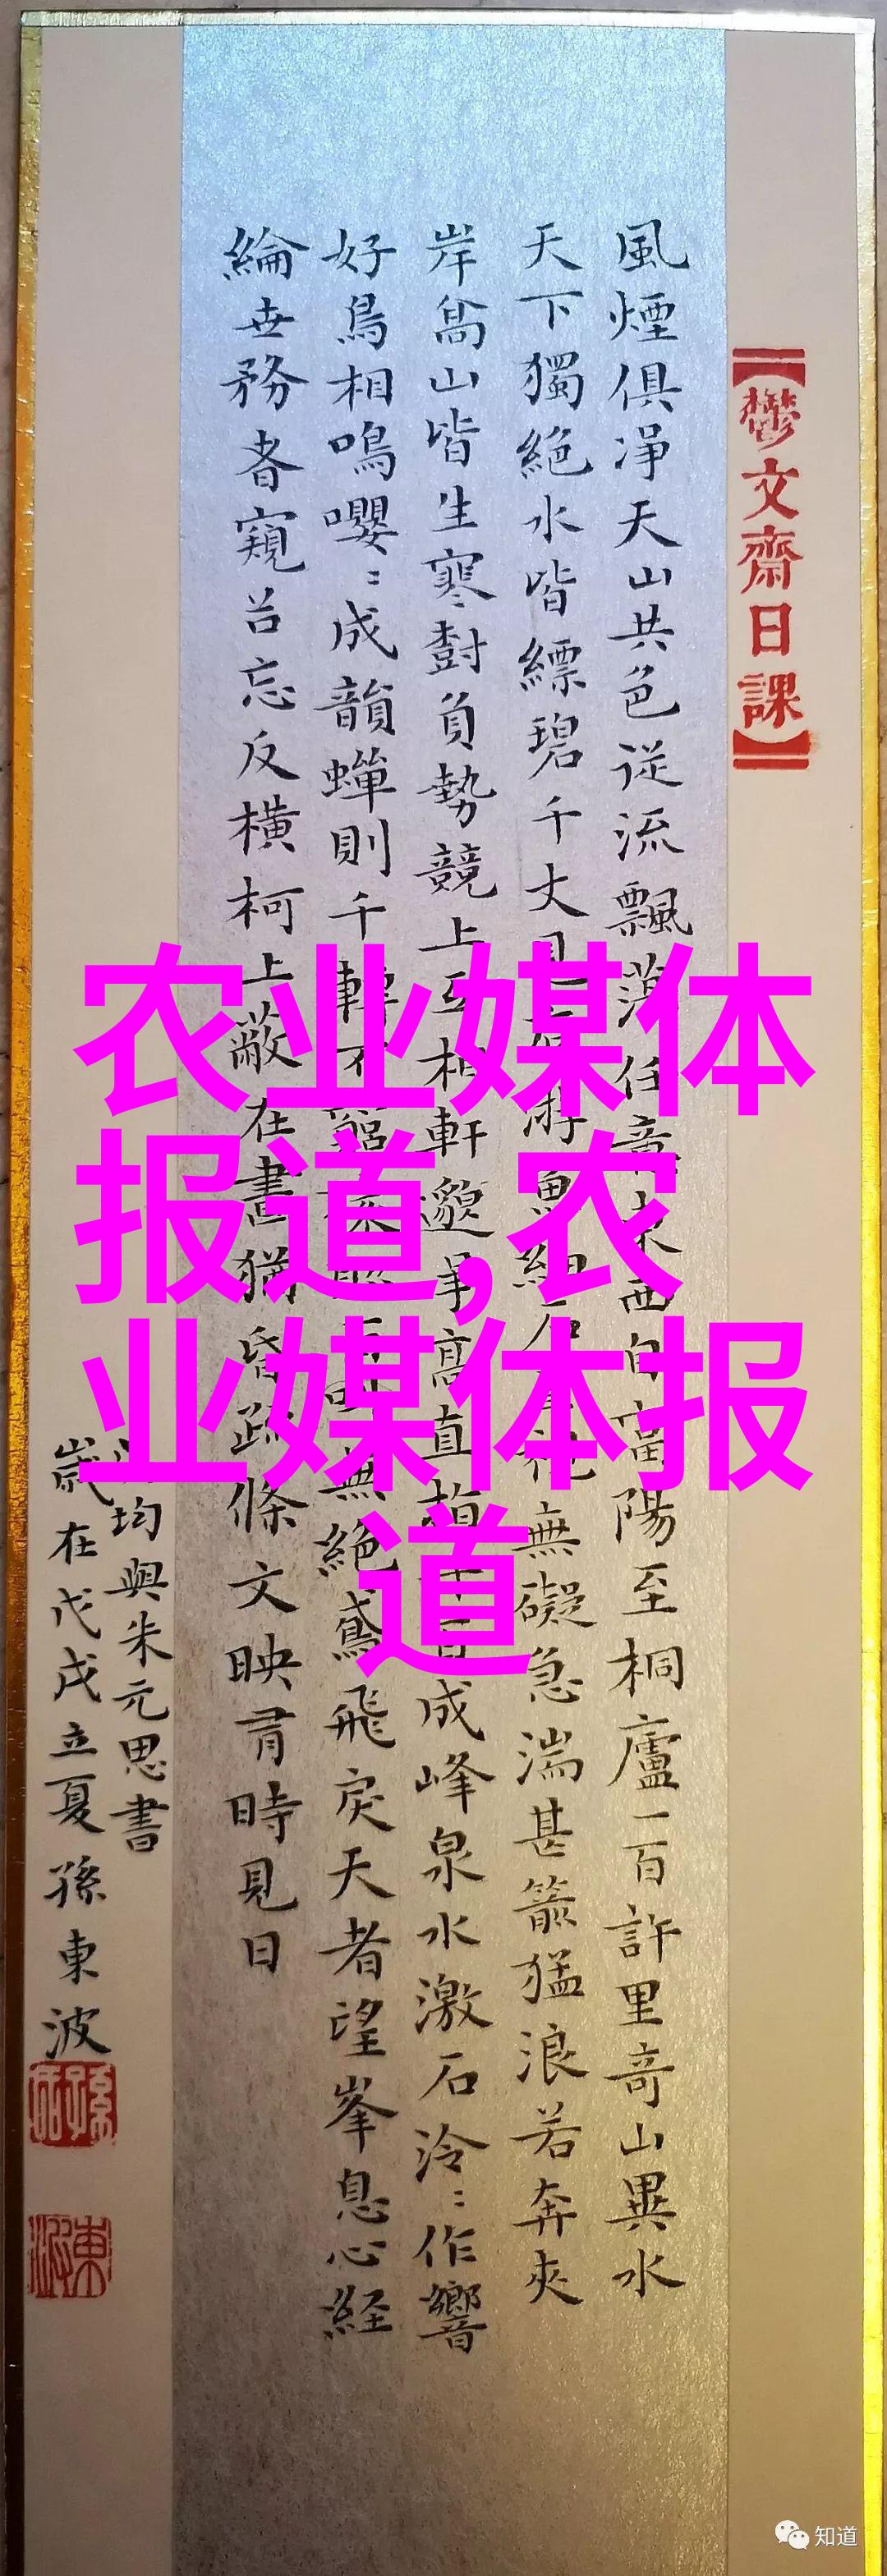 【鬱文齋日課】
風煙俱凈天山共色從流飄蕩任意東西自富陽至桐廬一百許里奇山異水
天下獨絕水皆縹碧千丈見底游魚細石直視無礙急湍甚箭猛浪若奔夾
岸高山皆生寒樹負勢競上互相軒邈爭高直指千百成峰泉水激石泠泠作響
好鳥相鳴嚶嚶成韻蟬則千轉不窮猿則百叫無絕鳶飛戾天者望峯息心経
綸世務者窺谷忘反橫柯上蔽在晝猶昏疏條交映有時見日
均與朱元思書
歲在戊戌立夏孫東波
农业媒体
报道,农
业媒体报
道
知道